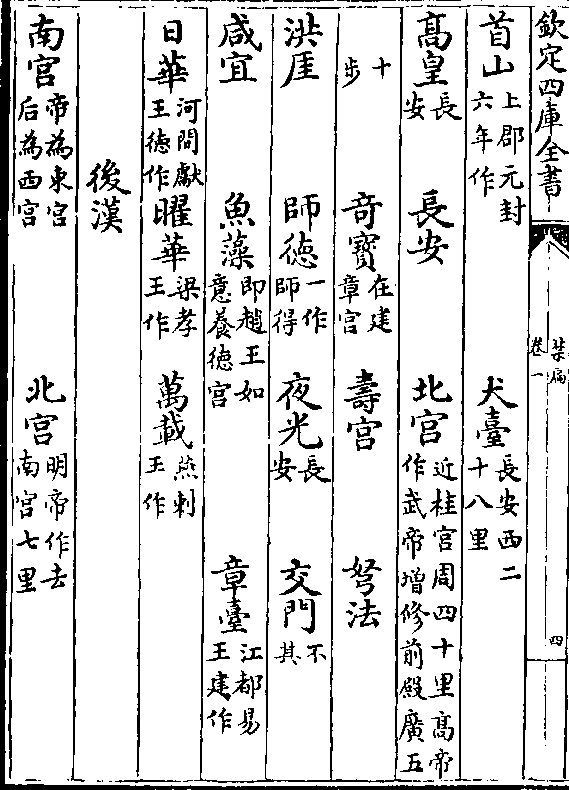 欽定四庫全書
禁扁
卷一
四
首山上郡元封六年作 犬臺長安西二十八里
髙皇長安 長安 北宫近桂宫周四十里髙帝作武帝增修前殿廣五
十步 竒寳在建章宫 壽宫 弩法
洪厓 師徳一作師得 夜光長安 交門不其
咸宜 魚藻即趙王如意養徳宫 章臺江都易王建作
日華河間獻王徳作 曜華梁孝王作 萬載燕刺王作
後漢
南宫帝為東宫后為西宫 北宫明帝作去南宫七里